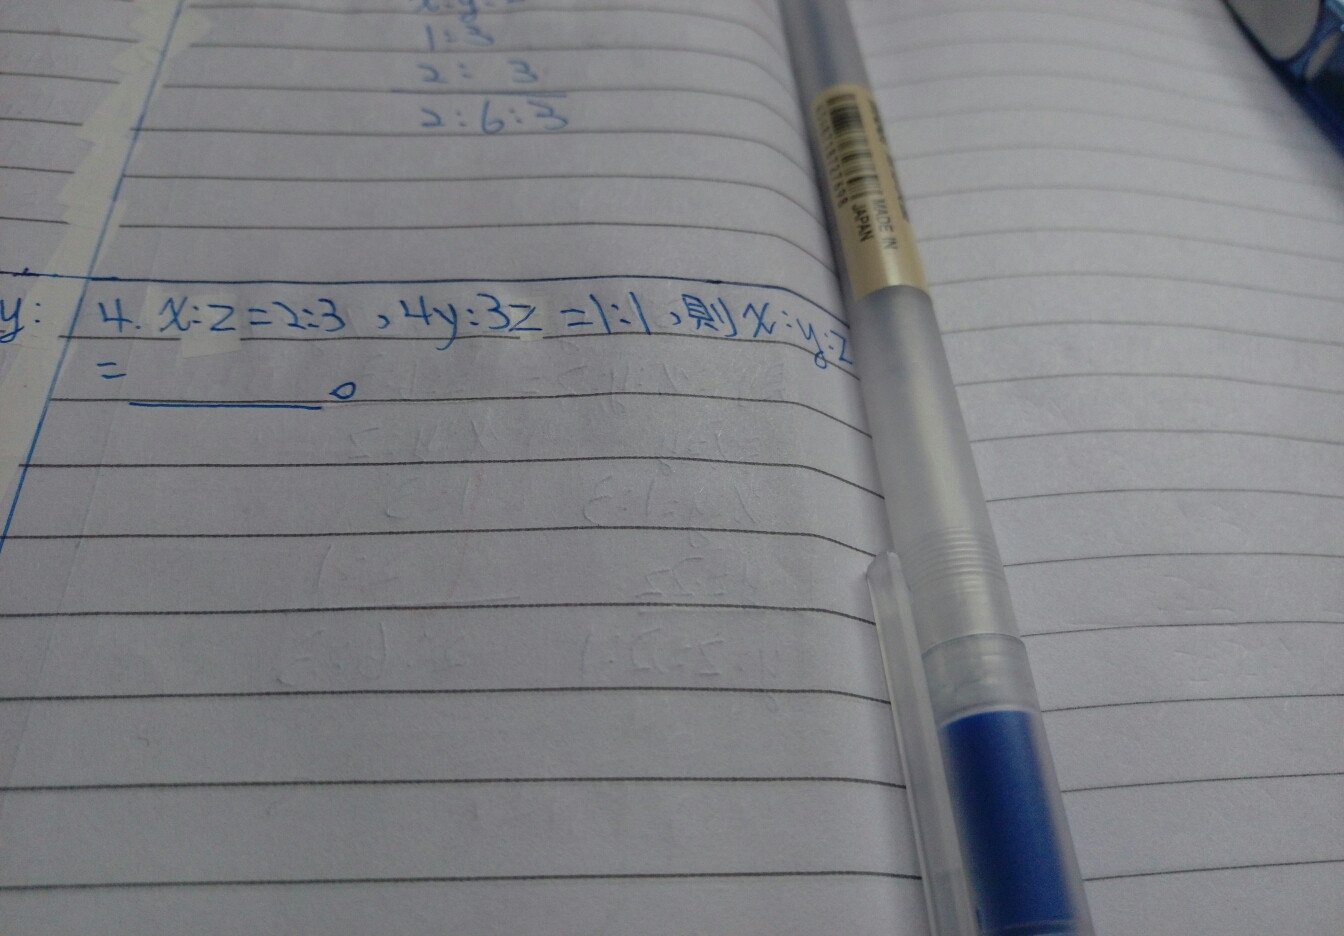 1:3
2: 3
2:6:3
y:
4. x:z=2:3,4y:3z=1:1,則x:y:z
=______。
MADE IN
JAPAN